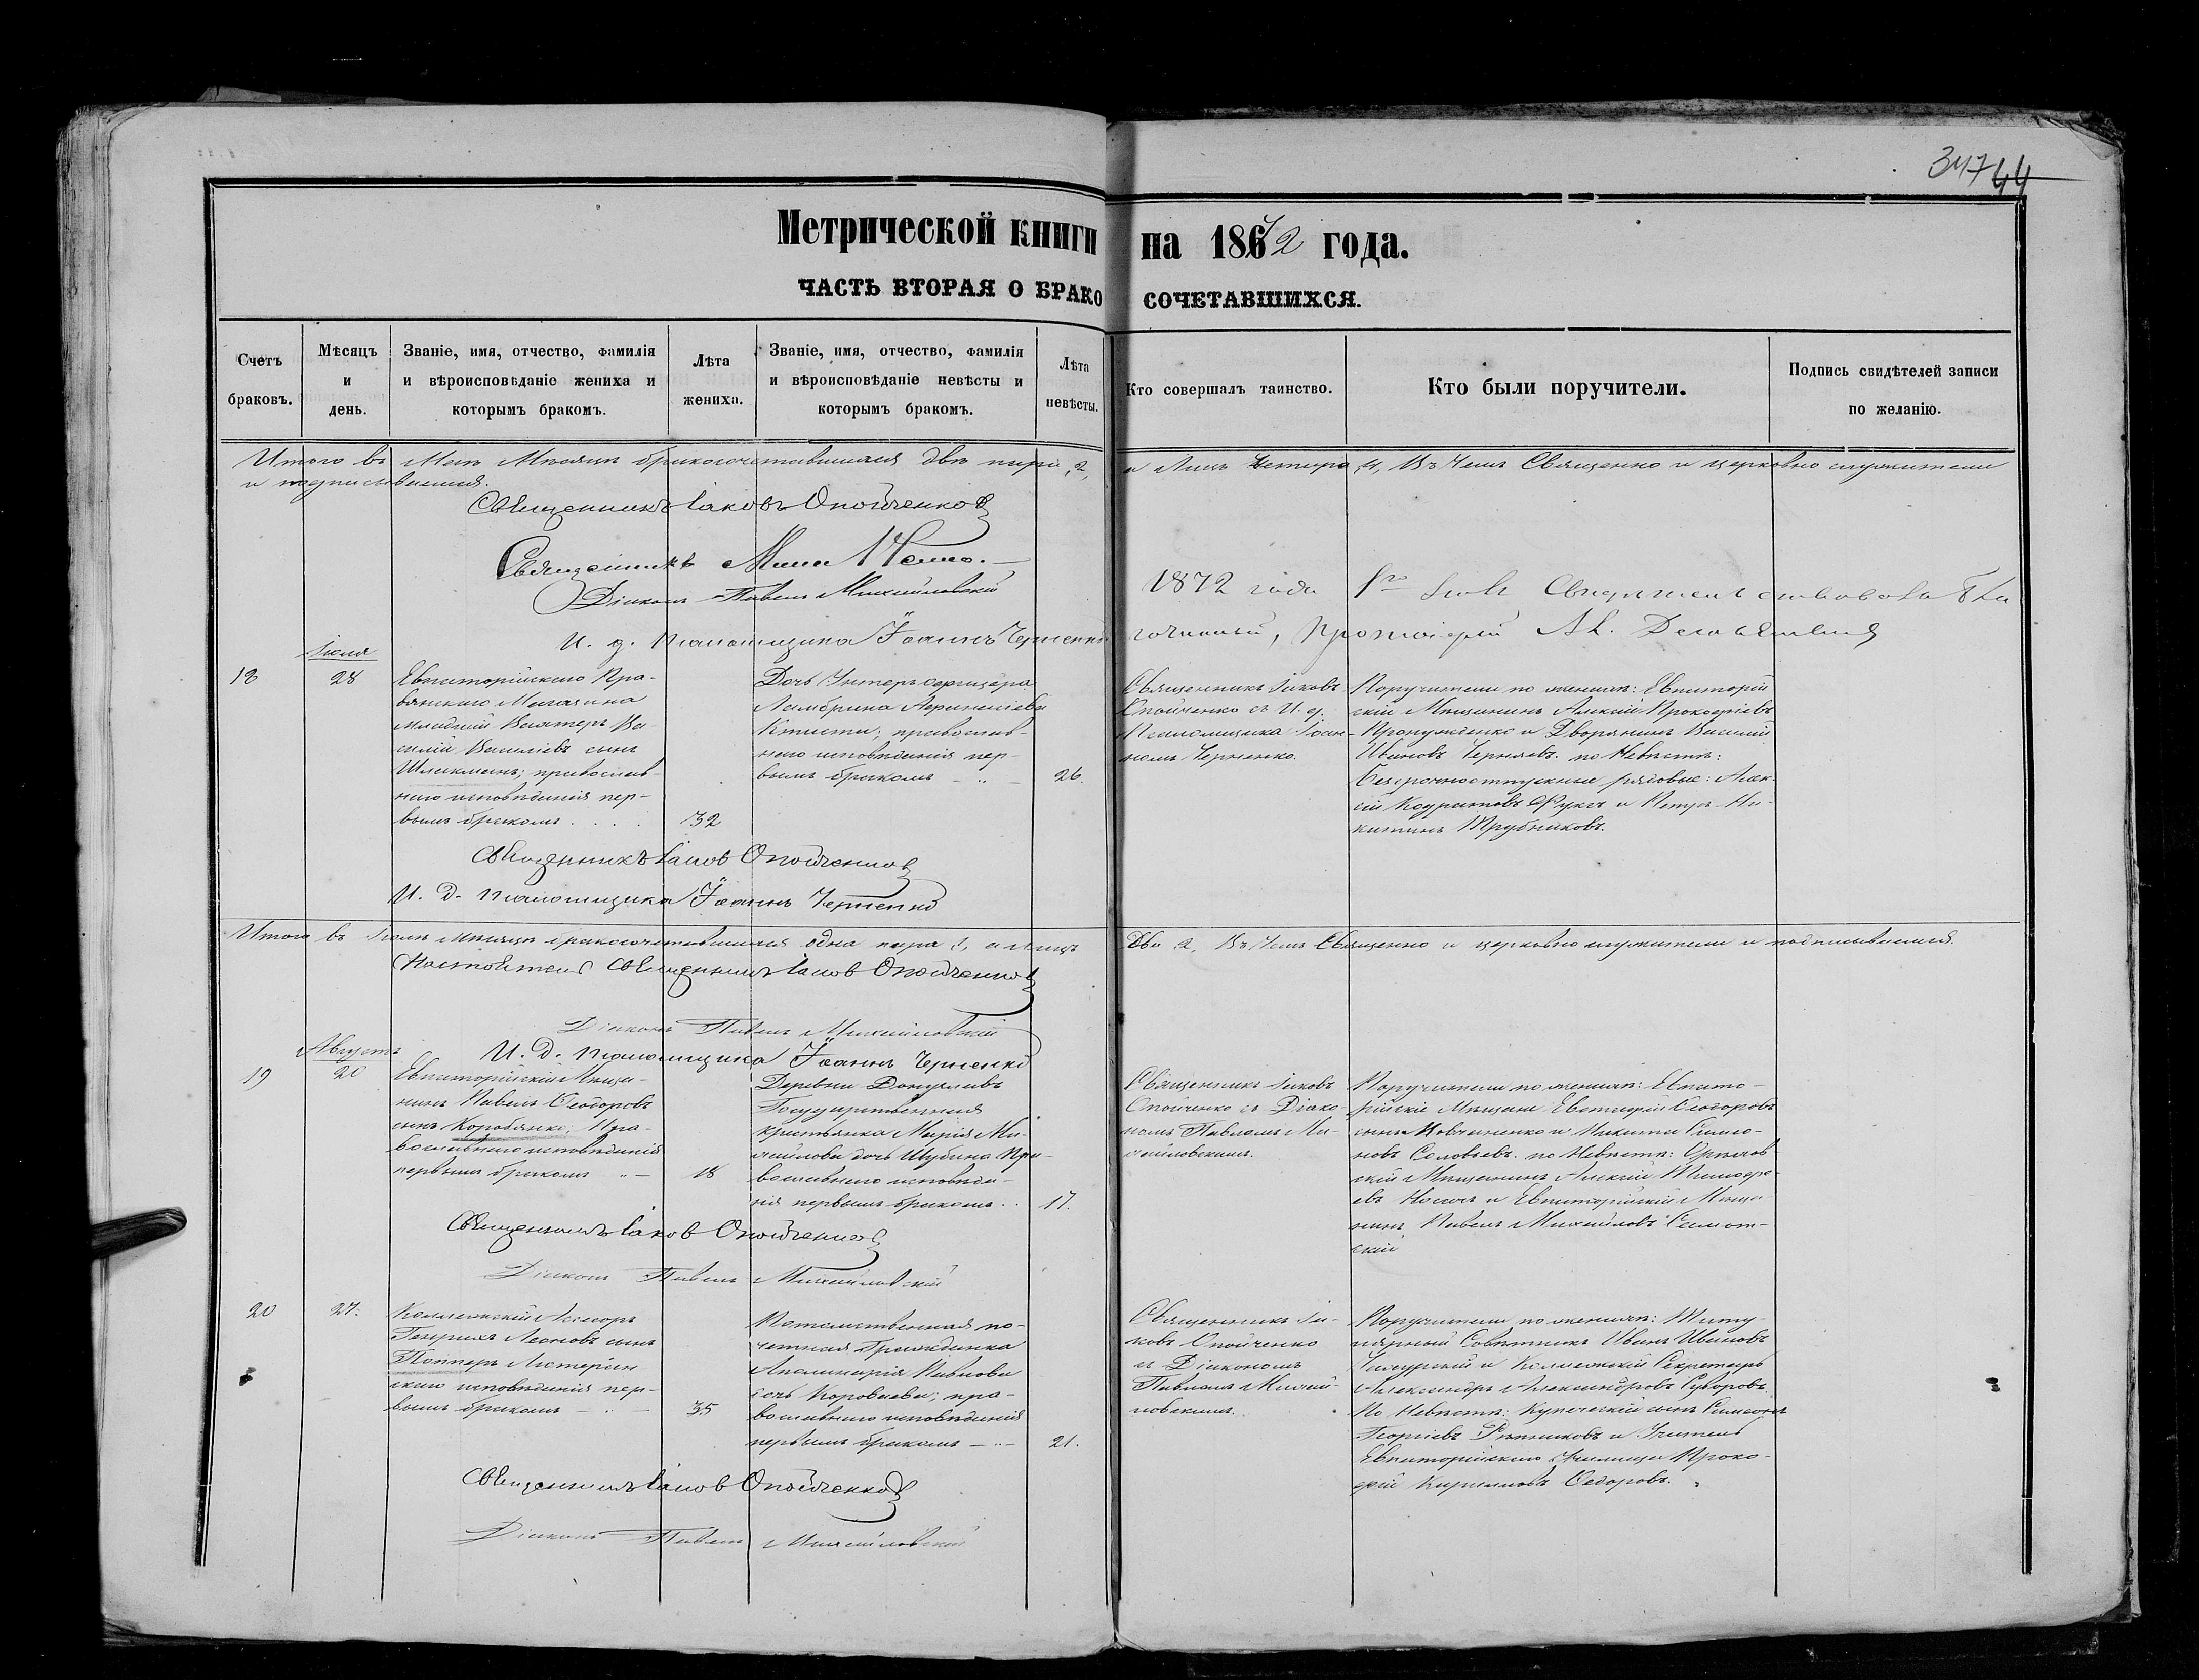 347 44
Метрической книги на 1872 года.
ЧАСТЬ ВТОРАЯ О БРАКОСОЧЕТАВШИХСЯ.
Счетъ браковъ.
Мѣсяцъ и день.
Званіе, имя, отчество, фамилія и вѣроисповѣданіе жениха и которымъ бракомъ.
Лѣта жениха.
Званіе, имя, отчество, фамилія и вѣроисповѣданіе невѣсты и которымъ бракомъ.
Лѣта невѣсты.
Кто совершалъ таинство.
Кто были поручители.
Подпись свидѣтелей записи по желанію.
Итого въ Маѣ Мѣсяцѣ бракосочетавшихся двѣ пары, 2, а лицъ четыре, 4, Въ чемъ Священно и церковно служители
и подписываемся.
Священникъ Іаковъ Опойченко
Священникъ
Діаконъ Павелъ Михайловскій
И. д. псаломщика Іоаннъ Черненко
1872 года Свидѣтельствовалъ Бла
гочинный, Протоіерей
18
Іюля
28
Евпаторійскаго Про-
віянскаго Магазина
младшій Вахтеръ Ва-
силій Васильевъ сынъ
православ-
наго исповѣданія пер-
вымъ бракомъ
32
Дочь Унтеръ офицера
православ-
наго исповѣданія пер-
вымъ бракомъ
26.
Священникъ Іаковъ
Опойченко съ И. д.
Псаломщика Іоан-
номъ Черненко.
Поручители по женихѣ: Евпаторій
скій Мѣщанинъ Алексій Прокофіевъ
и Дворянинъ Василій
Ивановъ Чернявъ. по Невѣстѣ:
Безсрочноотпускные рядовые: Алек-
сій Кодратовъ Фуксъ и Петръ Ни-
китинъ Трубниковъ.
Священникъ Іаковъ Опойченко
И. д. псаломщика Іоаннъ Черненко
Итого въ Іюлѣ мѣсяцѣ бракосочетавшихся одна пара 1, а лицъ Два 2, Въ чемъ Священно и церковно служители и подписываемся.
Настоятель Священникъ Іаковъ Опойченко
Діаконъ Павелъ Михайловскій
И. д. псаломщика Іоаннъ Черненко
19
Августъ
20
Евпаторійскій Мѣща-
нинъ Павелъ Ѳеодоровъ
сынъ Коровянко; Пра-
вославнаго исповѣданія
первымъ бракомъ
18
Деревни Донузлавъ
Государственная
крестьянка Марія Ми-
хайлова дочь Шубина Пра-
вославнаго исповѣда-
нія первымъ бракомъ
17.
Священникъ Іаковъ
Опойченко съ Діако-
номъ Павломъ Ми-
хайловскимъ.
Поручители по женихѣ: Евпато-
рійскіе Мѣщане Евстафій Ѳеодоровъ
сынъ и Никита Симео-
новъ Соловьевъ. по Невѣстѣ:
скій Мѣщанинъ Алексій Тимофе-
евъ и Евпаторійскій Мѣща-
нинъ Павелъ Михайловъ
скій
Священникъ Іаковъ Опойченко
Діаконъ Павелъ Михайловскій
20
27.
Коллежскій Ассесоръ
Генрихъ Леоновъ сынъ
Попперъ Лютеран
скаго исповѣданія пер-
вымъ бракомъ
35
Потомственная по-
четная Гражданка
Аполинарія Павлова
дочь пра-
вославнаго исповѣданія
первымъ бракомъ
21.
Священникъ Іа-
ковъ Опойченко
съ Діакономъ
Павломъ Михай-
ловскимъ.
Поручители по женихѣ: Титу-
лярный Совѣтникъ Иванъ Ивановъ
и Коллежскій Секретарь
Александръ Александровъ Суворовъ.
По Невѣстѣ: Купеческій сынъ Симеонъ
Георгіевъ и Учитель
Евпаторійскаго Училища Проко-
фій Кирилловъ Ѳедоровъ.
Священникъ Іаковъ Опойченко
Діаконъ Павелъ Михайловскій